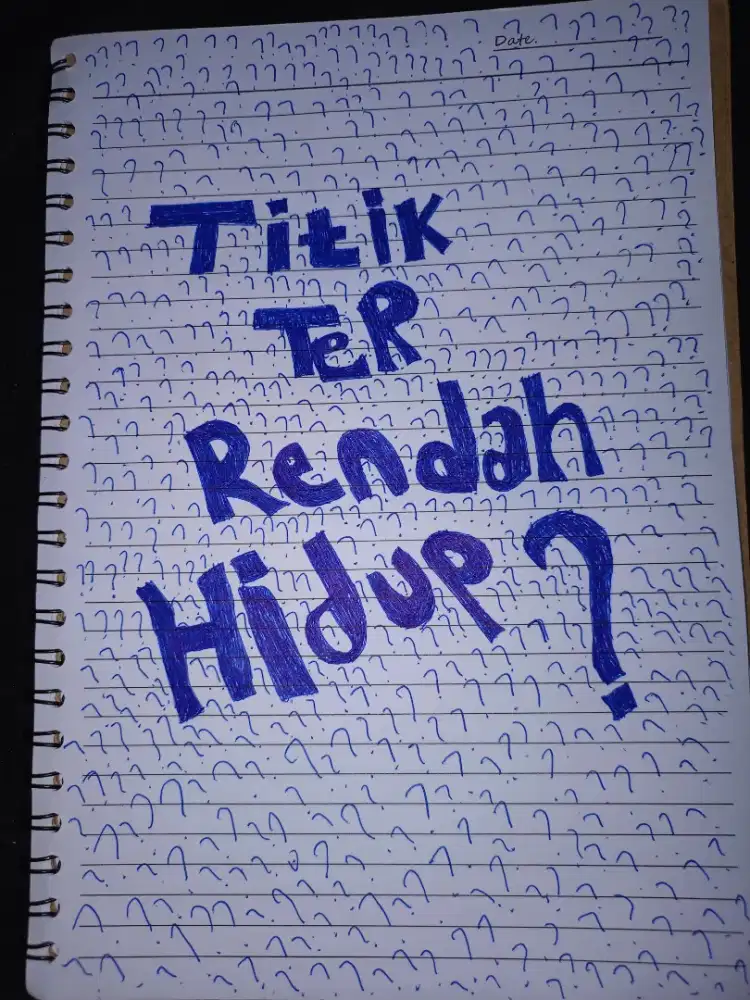 Date.
Titik
TeR
Rendah
Hidup?